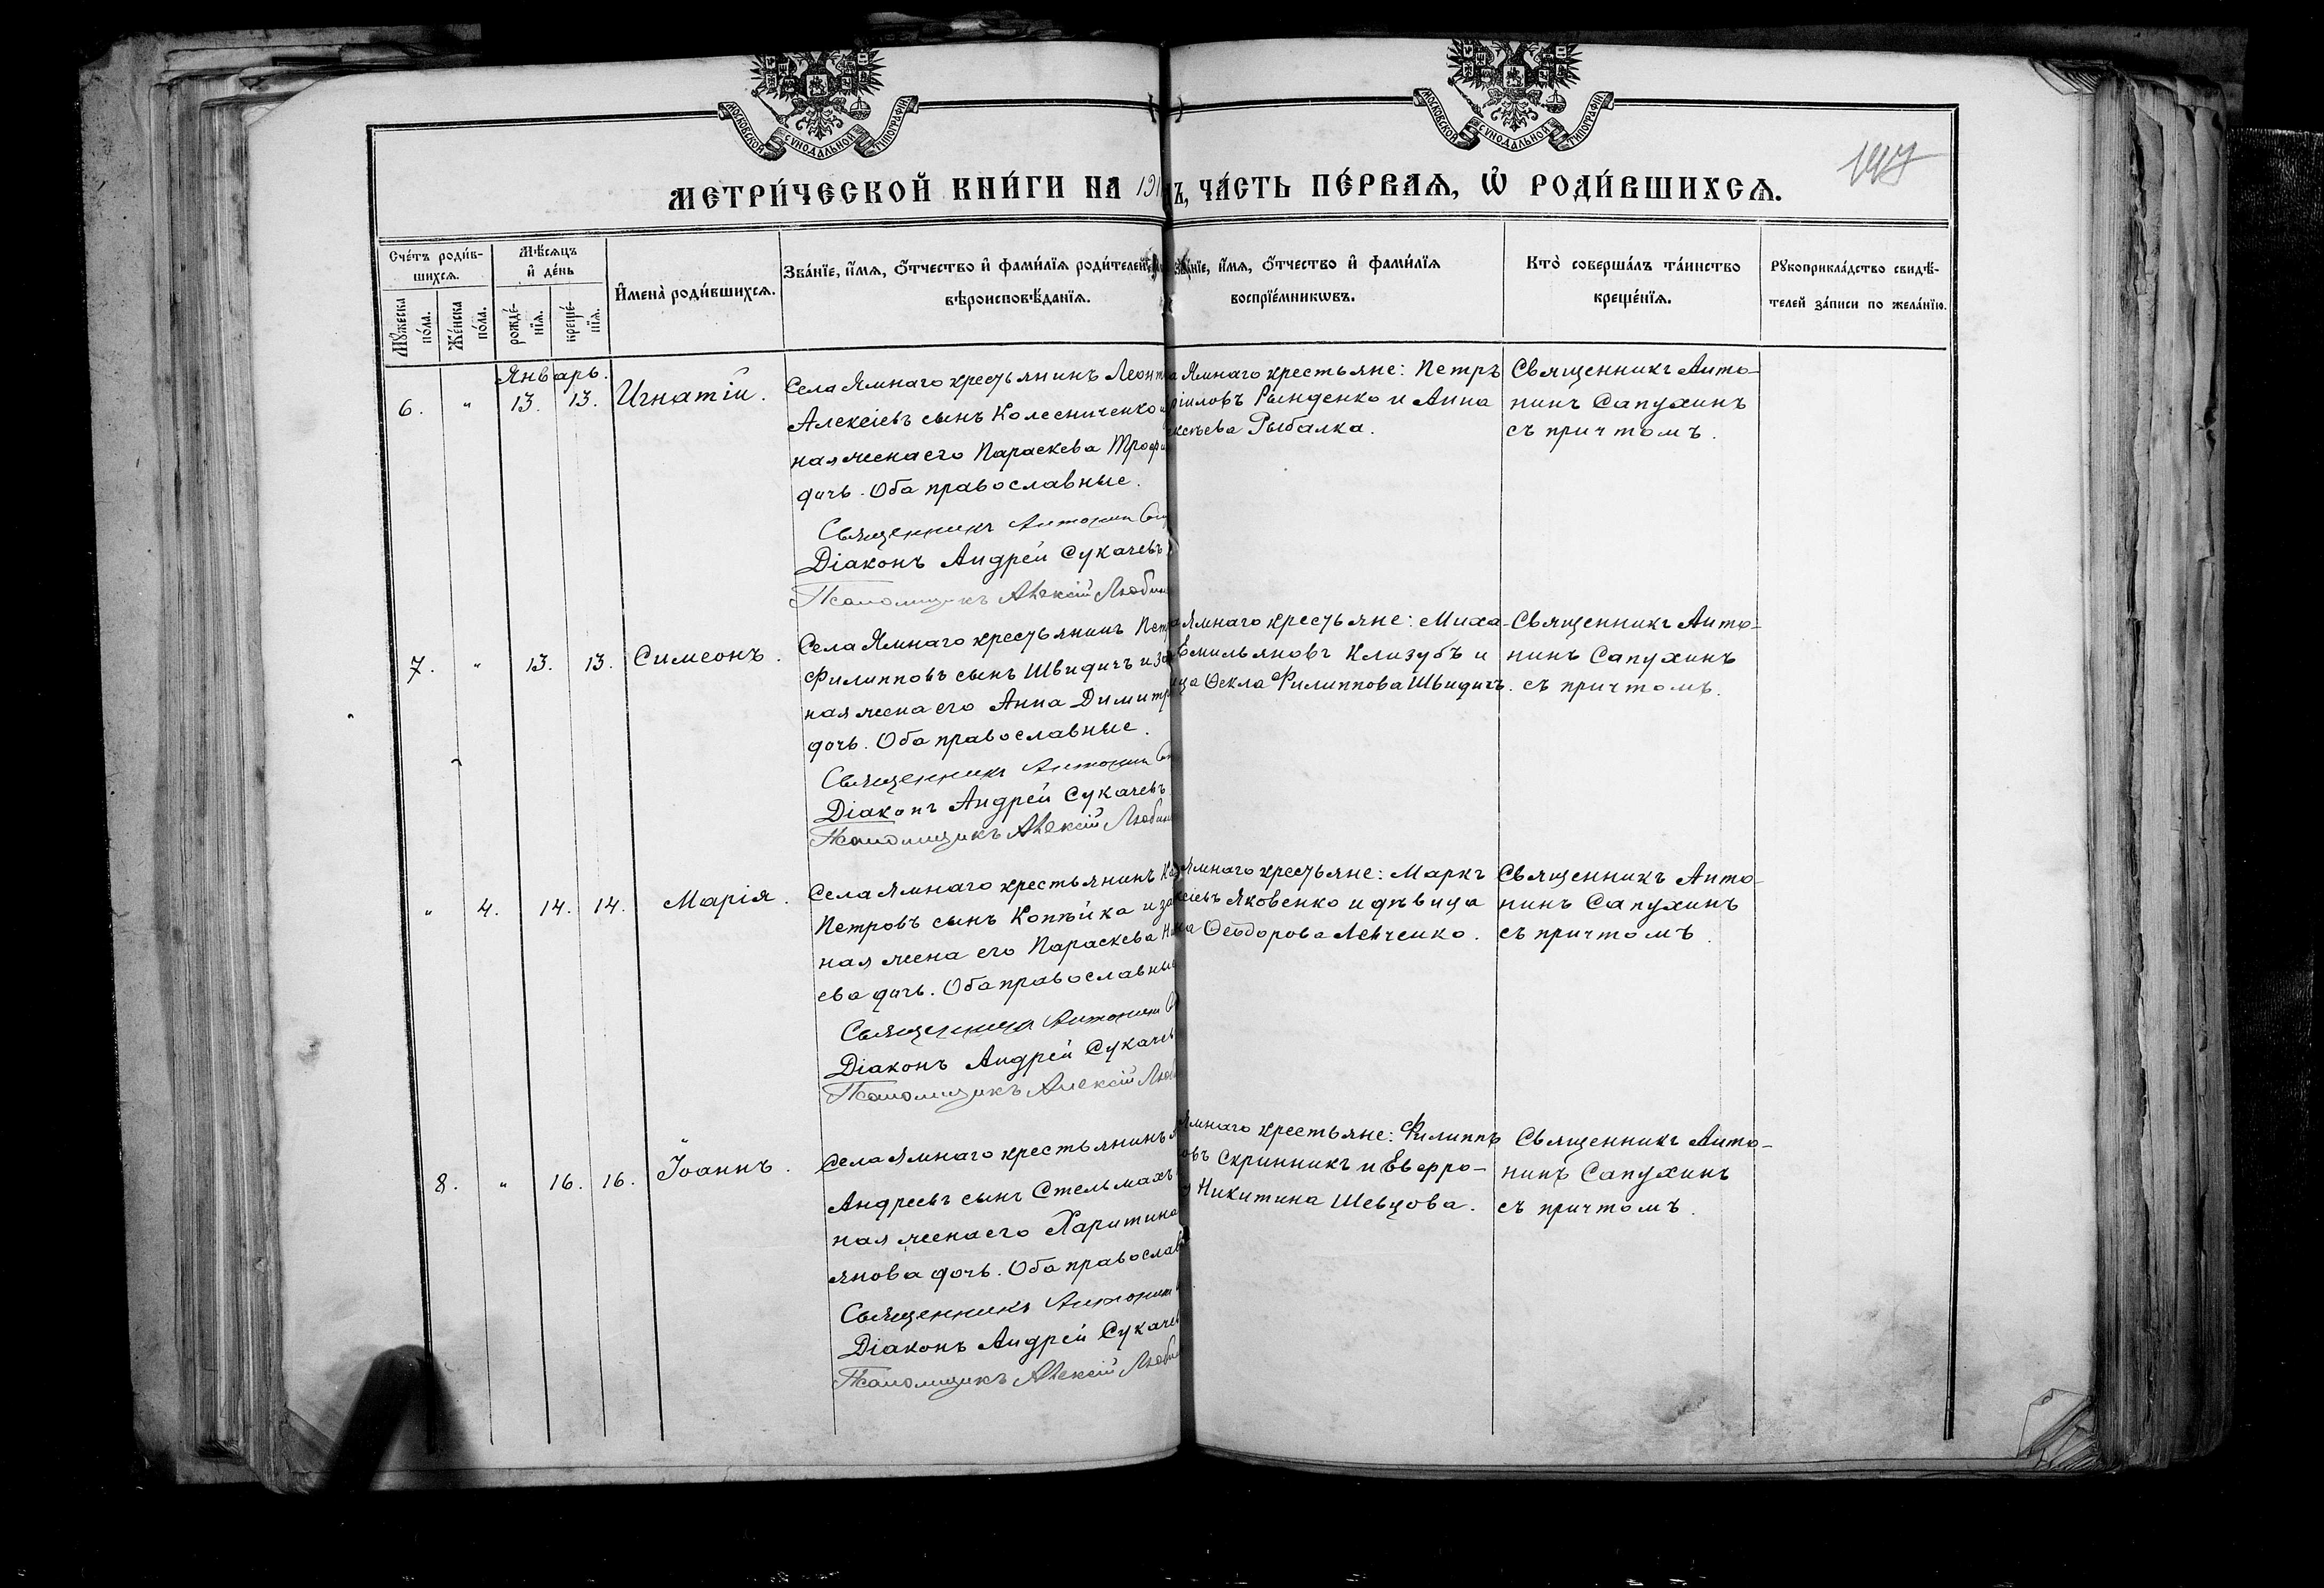 МОСКОВСКОЙ СѴНОДАЛЬНОЙ ТИПОГРАФІИ
МОСКОВСКОЙ СѴНОДАЛЬНОЙ ТИПОГРАФІИ
147
МЕТРИ́ЧЕСКОЙ КНИ́ГИ НА 191
Ъ, ЧА́СТЬ ПЕ́РВАѦ, Ѡ РОДИ́ВШИХСѦ.
Сче́тъ роди́в-
шихсѧ.
Мѣ́сѧцъ
и҆ де́нь
И҆мена̀ роди́вшихсѧ.
Зва́нїе, и҆́мѧ, ѻ҆́тчество и҆ фами́лїѧ роди́телей
вѣроисповѣ́данїѧ.
Мꙋ́жеска
по́ла.
Же́нска
по́ла.
рожде́-
нїѧ.
креще́-
нїѧ.
нїе, и҆́мѧ, ѻ҆́тчество и҆ фами́лїѧ
воспрїе́мникѡвъ.
Кто̀ соверша́лъ та́инство
креще́нїѧ.
Рꙋкоприкла́дство свидѣ́-
телей за́писи по жела́нїю.
Январь.
6. " 13. 13. Игнатій.
Села Ямнаго крестьянинъ Леонт
Алексіевъ сынъ Колесниченко
ная жена его Параскева Троф
дочь. Оба православные.
Священникъ Антонин Сап
Діаконъ Андрей Сукачевъ
Псаломщикъ Алексій Любиц
а Ямнаго крестьяне: Петръ
риловъ Рынденко и Анна
ексѣева Рыбалка.
Священникъ Анто-
нинъ Сапухинъ
съ причтомъ.
7. " 13. 13. Симеонъ.
Села Ямнаго крестьянинъ Пет
Филипповъ сынъ Швидичъ и за
ная жена его Анна Димитр
дочь. Оба православные.
Священникъ Антонин Са
Діаконъ Андрей Сукачевъ
Псаломщикъ Алексій Любиц
а Ямнаго крестьяне: Миха-
Емильяновъ Клизубъ и
ица Ѳекла Филиппова Швидичъ.
Священникъ Анто-
нинъ Сапухинъ
съ причтомъ.
" 4. 14. 14. Марія.
Села Ямнаго крестьянинъ
Петровъ сынъ Копѣйка и за
ная жена его Параскева
ева дочь. Оба православны
Священникъ Антонин
Діаконъ Андрей Сукачев
Псаломщикъ Алексій Люб
Ямнаго крестьяне: Маркъ
ксіевъ Яковенко и дѣвица
на Ѳеодорова Левченко.
Священникъ Анто-
нинъ Сапухинъ
съ причтомъ.
8. " 16. 16. Іоаннъ.
Села Ямнаго крестьянинъ
Андреевъ сынъ Стельмахъ
ная жена его Харитина
янова дочь. Оба православ
Священникъ Антонин
Діаконъ Андрей Сукачев
Псаломщикъ Алексій Люби
Ямнаго крестьяне: Филиппъ
овъ Скринникъ и Евфро-
Никитина Шевцова.
Священникъ Анто-
нинъ Сапухинъ
съ причтомъ.